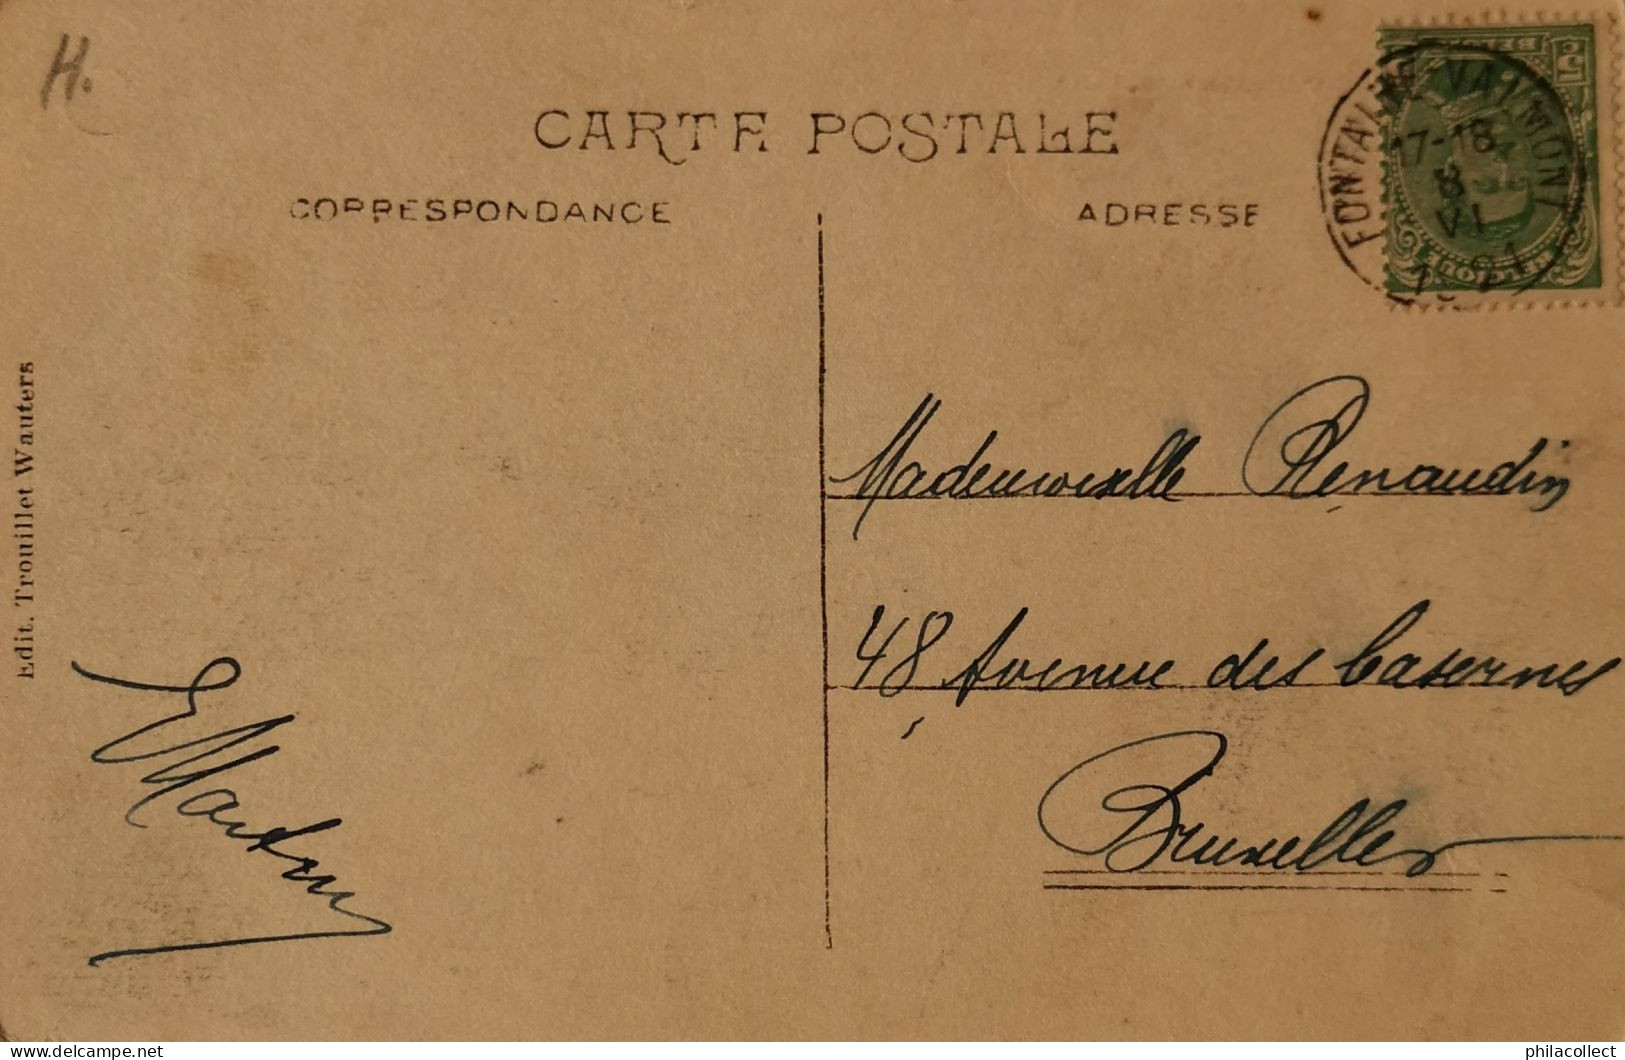 H.
CARTE POSTALE
CORRESPONDANCE
ADRESSE
FONTAINE-VALMONT
17-18
8
VI
BELGIQUE
5
Edit. Trouillet Wauters
Mademoiselle Renaudin
48, Avenue des Casernes
Bruxelles
philacollect